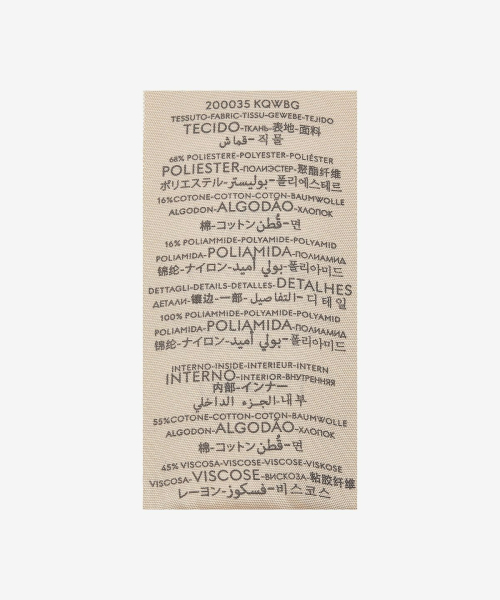 200035 KQWBG
TESSUTO-FABRIC-TISSU-GEWEBE-TEJIDO
TECIDO-ТКАНЬ-表地-面料
قماش-직물
68% POLIESTERE-POLYESTER-POLIÉSTER
POLIESTER-ПОЛИЭСТЕР-聚酯纤维
ポリエステル-بوليستر-폴리에스테르
16%COTONE-COTTON-COTON-BAUMWOLLE
ALGODON-ALGODÃO-ХЛОПОК
棉-コットン-قُطن-면
16% POLIAMMIDE-POLYAMIDE-POLYAMID
POLIAMIDA-POLIAMIDA-ПОЛИАМИД
锦纶-ナイロン-بولي أميد-폴리아미드
DETTAGLI-DETAILS-DETALLES-DETALHES
ДЕТАЛИ-镶边-一部-التفاصيل-디테일
100% POLIAMMIDE-POLYAMIDE-POLYAMID
POLIAMIDA-POLIAMIDA-ПОЛИАМИД
锦纶-ナイロン-بولي أميد-폴리아미드
INTERNO-INSIDE-INTERIEUR-INTERN
INTERNO-INTERIOR-ВНУТРЕННЯЯ
内部-インナー
الجزء الداخلي-내부
55%COTONE-COTTON-COTON-BAUMWOLLE
ALGODON-ALGODÃO-ХЛОПОК
棉-コットン-قُطن-면
45% VISCOSA-VISCOSE-VISCOSE-VISKOSE
VISCOSA-VISCOSE-ВИСКОЗА-粘胶纤维
レーヨン-فسكوز-비스코스